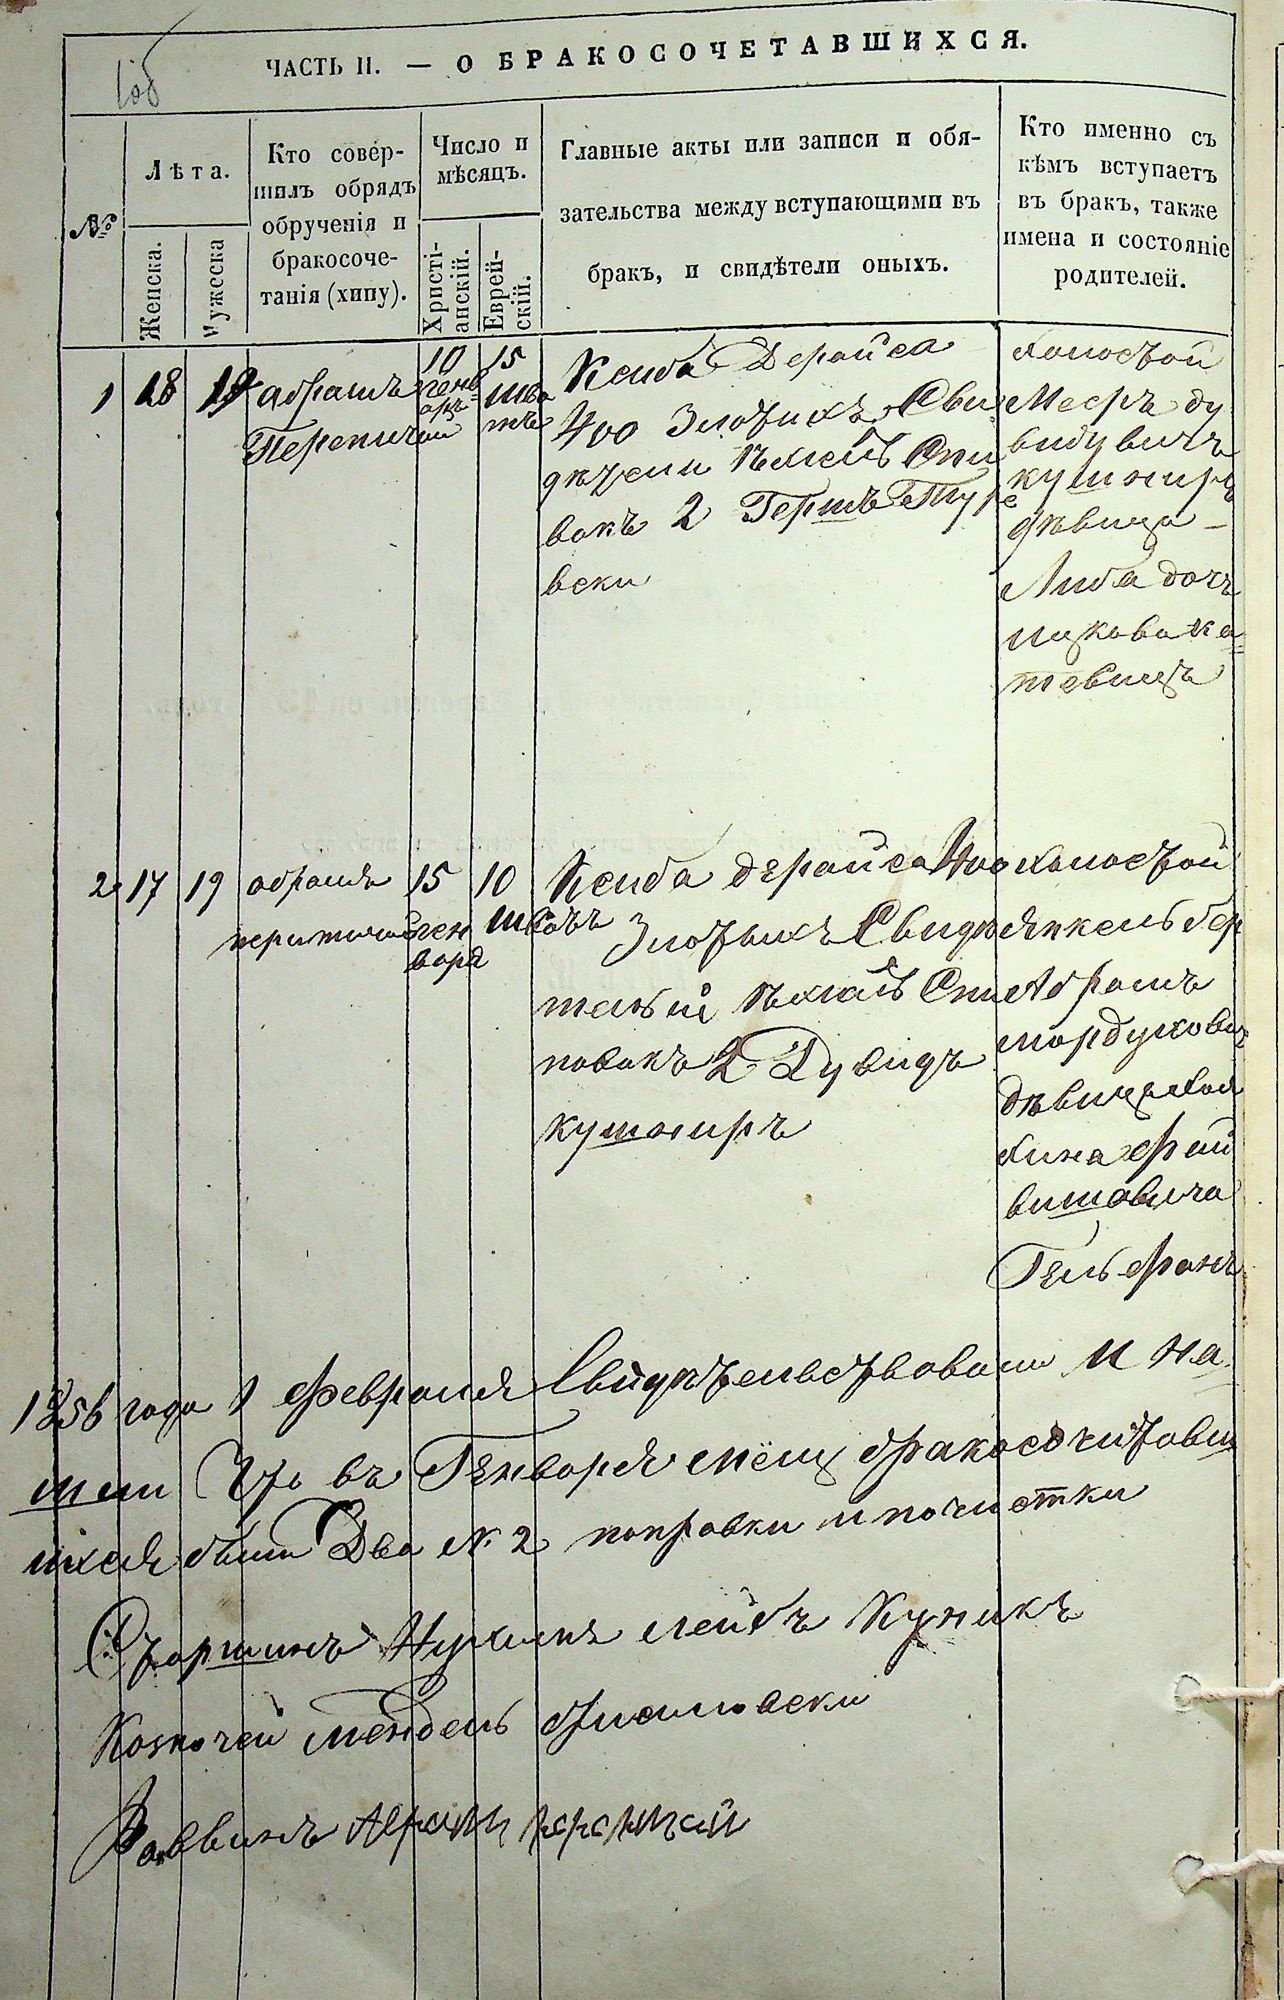 ЧАСТЬ II. — О БРАКОСОЧЕТАВШИХСЯ.
№
Лѣта.
Женска.
Мужеска
Кто совер-
шилъ обрядъ
обрученія и
бракосоче-
танія (хипу).
Число и
мѣсяцъ.
Христі-
анскій.
Еврей-
скій.
Главные акты или записи и обя-
зательства между вступающими въ
бракъ, и свидѣтели оныхъ.
Кто именно съ
кѣмъ вступаетъ
въ бракъ, также
имена и состояніе
родителей.
1
18
19
абрамъ
10
генв
аръ
15
шва
тъ
Ксиба Дерайса
400 Злотихъ Сви
дѣтели
вакъ 2 Гершъ Туре
вски
холостой
Мееръ ду
видувичъ
кушниръ
дѣвица —
Либа дочъ
ицкова ка
тевицъ
2
17
19
абрамъ
15
ген
варя
10
шватъ
Ксиба дерайса 400
Злотыхъ Свидѣ
тели
повакъ 2 Дувидъ
кушниръ
холостой
Янкель бер
Абрамъ
мордухович
дѣвица хая
хина фай
вишовича
Гельфанъ
1856 года 1 февраля Свидѣтельствовали и на
шли Что въ Генваря мѣсц бракосочитовш
ихся были Два № 2 поправки и почистки
Старшинъ Нухимъ лейбъ Куникъ
Казначей мендель
Раввинъ